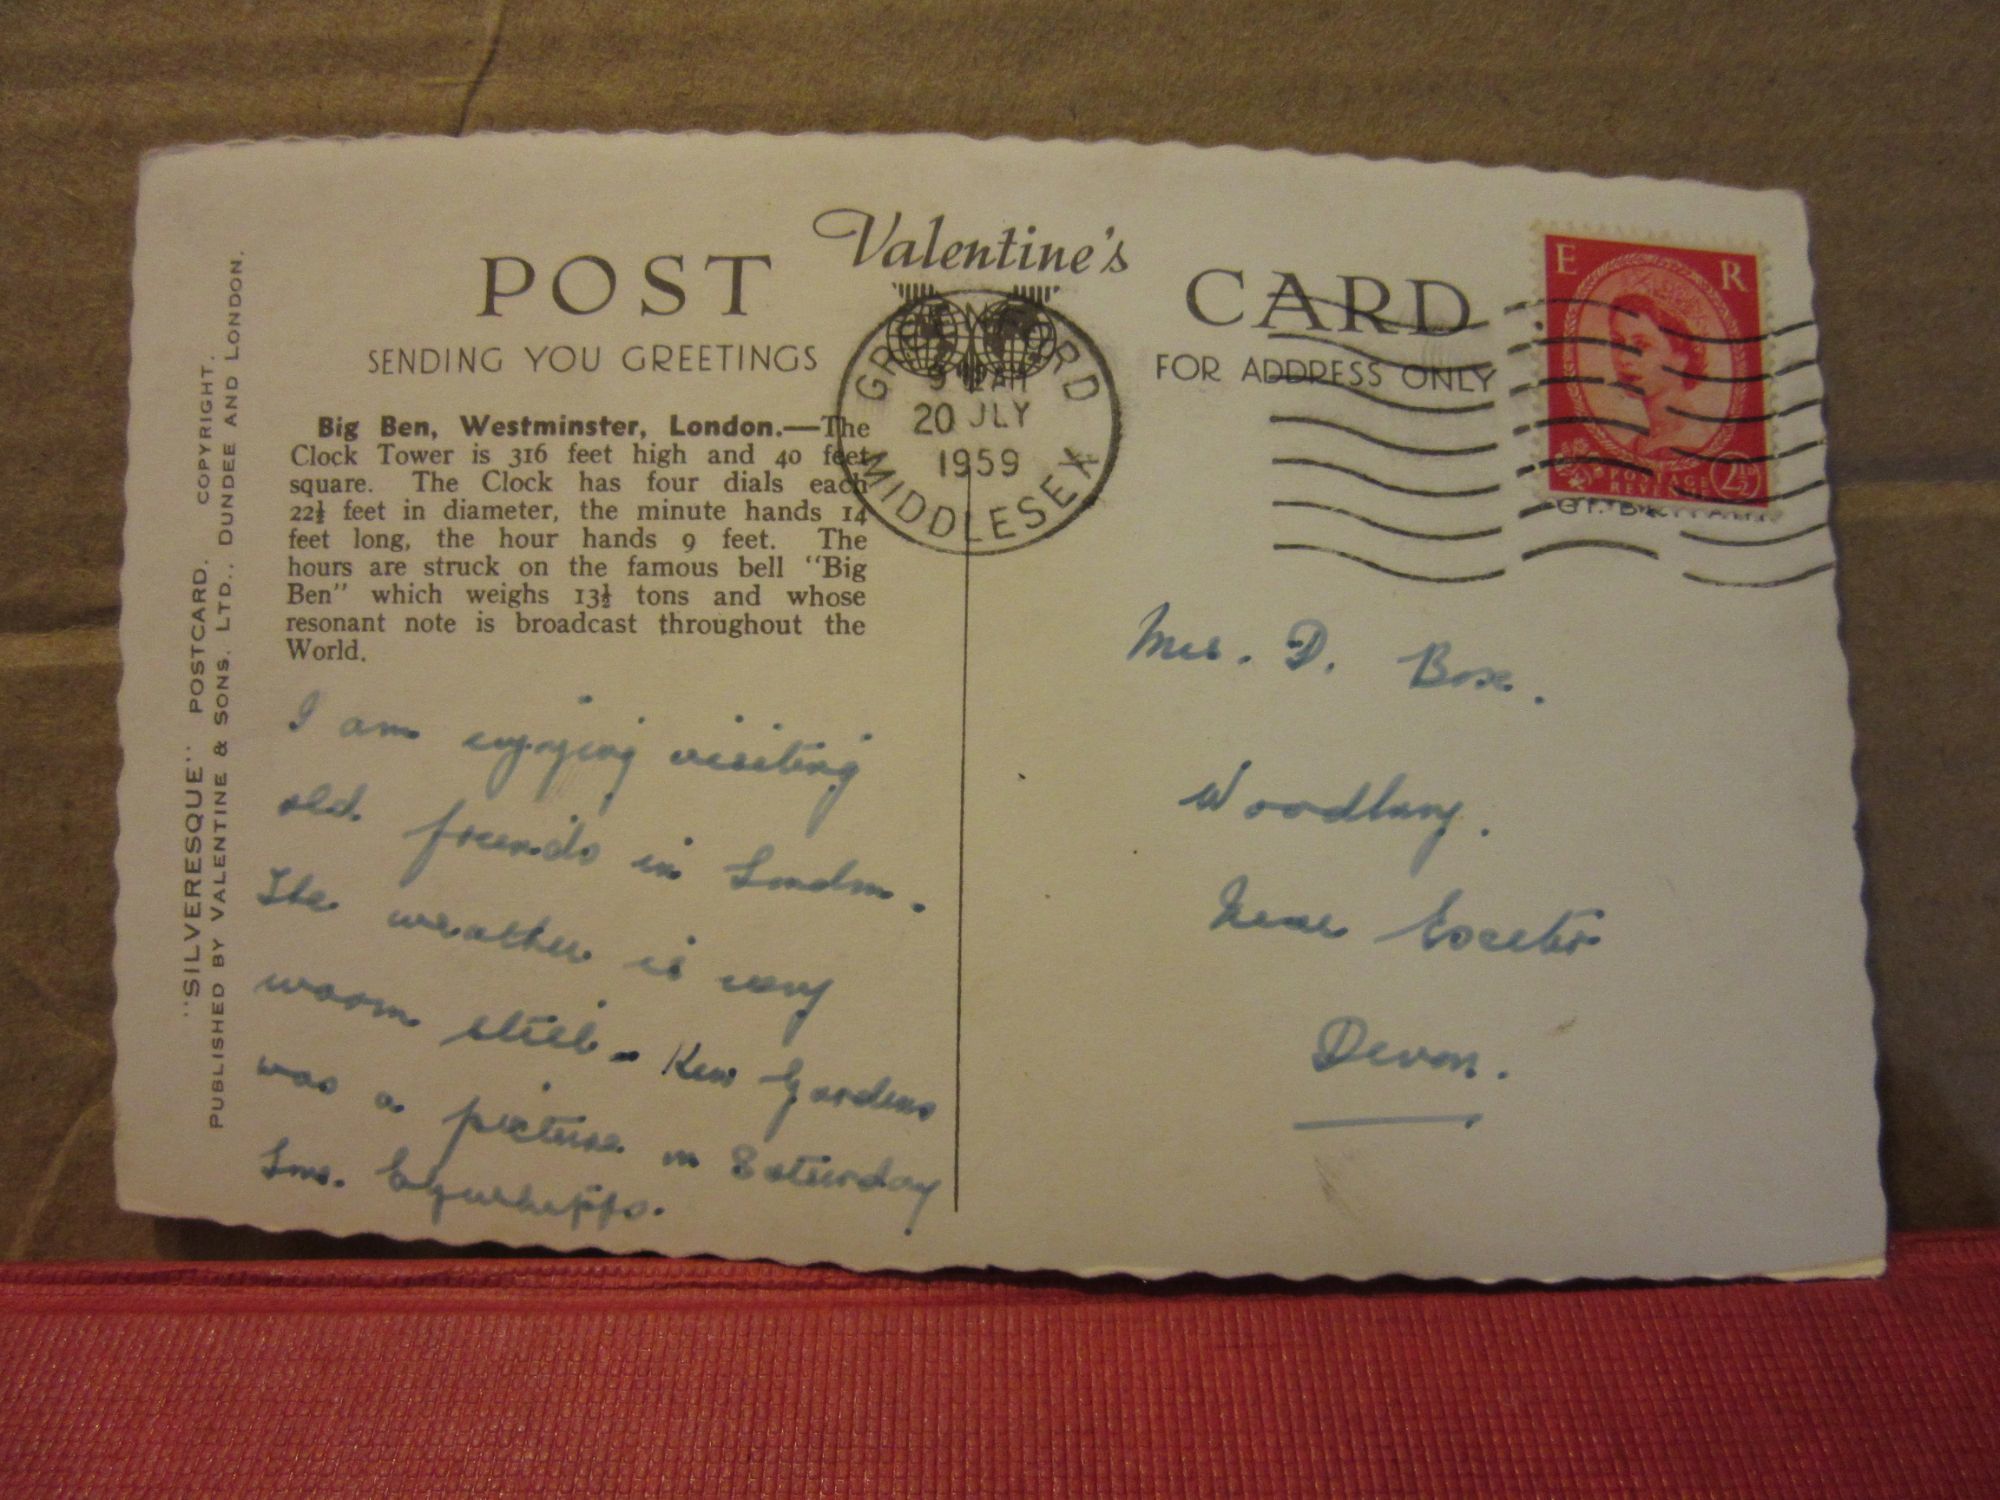 Valentine's
POST CARD
SENDING YOU GREETINGS
FOR ADDRESS ONLY
Big Ben, Westminster, London.—The
Clock Tower is 316 feet high and 40 feet
square. The Clock has four dials each
22½ feet in diameter, the minute hands 14
feet long, the hour hands 9 feet. The
hours are struck on the famous bell "Big
Ben" which weighs 13½ tons and whose
resonant note is broadcast throughout the
World.
I am enjoying visiting
old friends in London.
The weather is very
warm still - Kew Gardens
was a picture on Saturday
"SILVERESQUE" POSTCARD. COPYRIGHT.
PUBLISHED BY VALENTINE & SONS. LTD., DUNDEE AND LONDON.
20 JLY
1959
MIDDLESEX
E R
POSTAGE
REVENUE
2½D
Mrs. D. Box.
Woodbury.
Near Exeter
Devon.